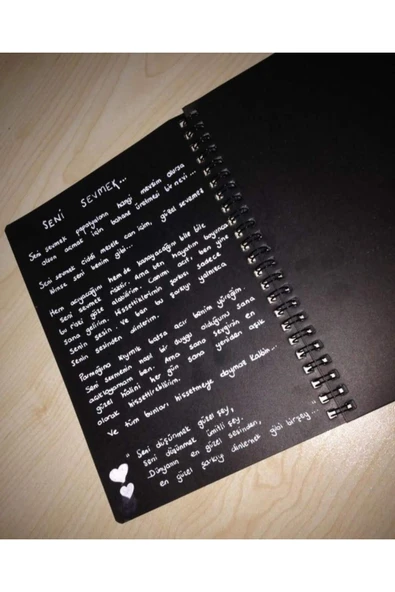 SENİ SEVMEK...
Seni sevmek papatyalara hangi mevsim olursa
olsun açmak için bahane üretmesi bir nevi...
Seni sevmek ciddi mesele can içim, güzel sevemez
kimse seni benim gibi...
Hem acıyacağını hem de kanayacağını bile bile
seni sevmek risktir. Ama ben hayatım boyunca
bu riski göze alabilirim. Canımı acıt, ben gene
sana gelirim. Hissettiklerinin şarkısı sadece
senin sesin. Ve ben bu şarkıyı yalnızca
senin sesinden dinlerim.
Parmağına kıymık batsa acır benim yüreğim.
Seni sevmenin nasıl bir duygu olduğunu sana
açıklayamam ben. Ama sana sevginin en
güzel halini her gün sana yeniden aşık
olarak hissettirebilirim.
Ve tüm bunları hissetmeye doymaz kalbin...
" Seni düşünmek güzel şey,
seni düşünmek ümitli şey.
Dünyanın en güzel sesinden,
en güzel şarkıyı dinlemek gibi birşey... "